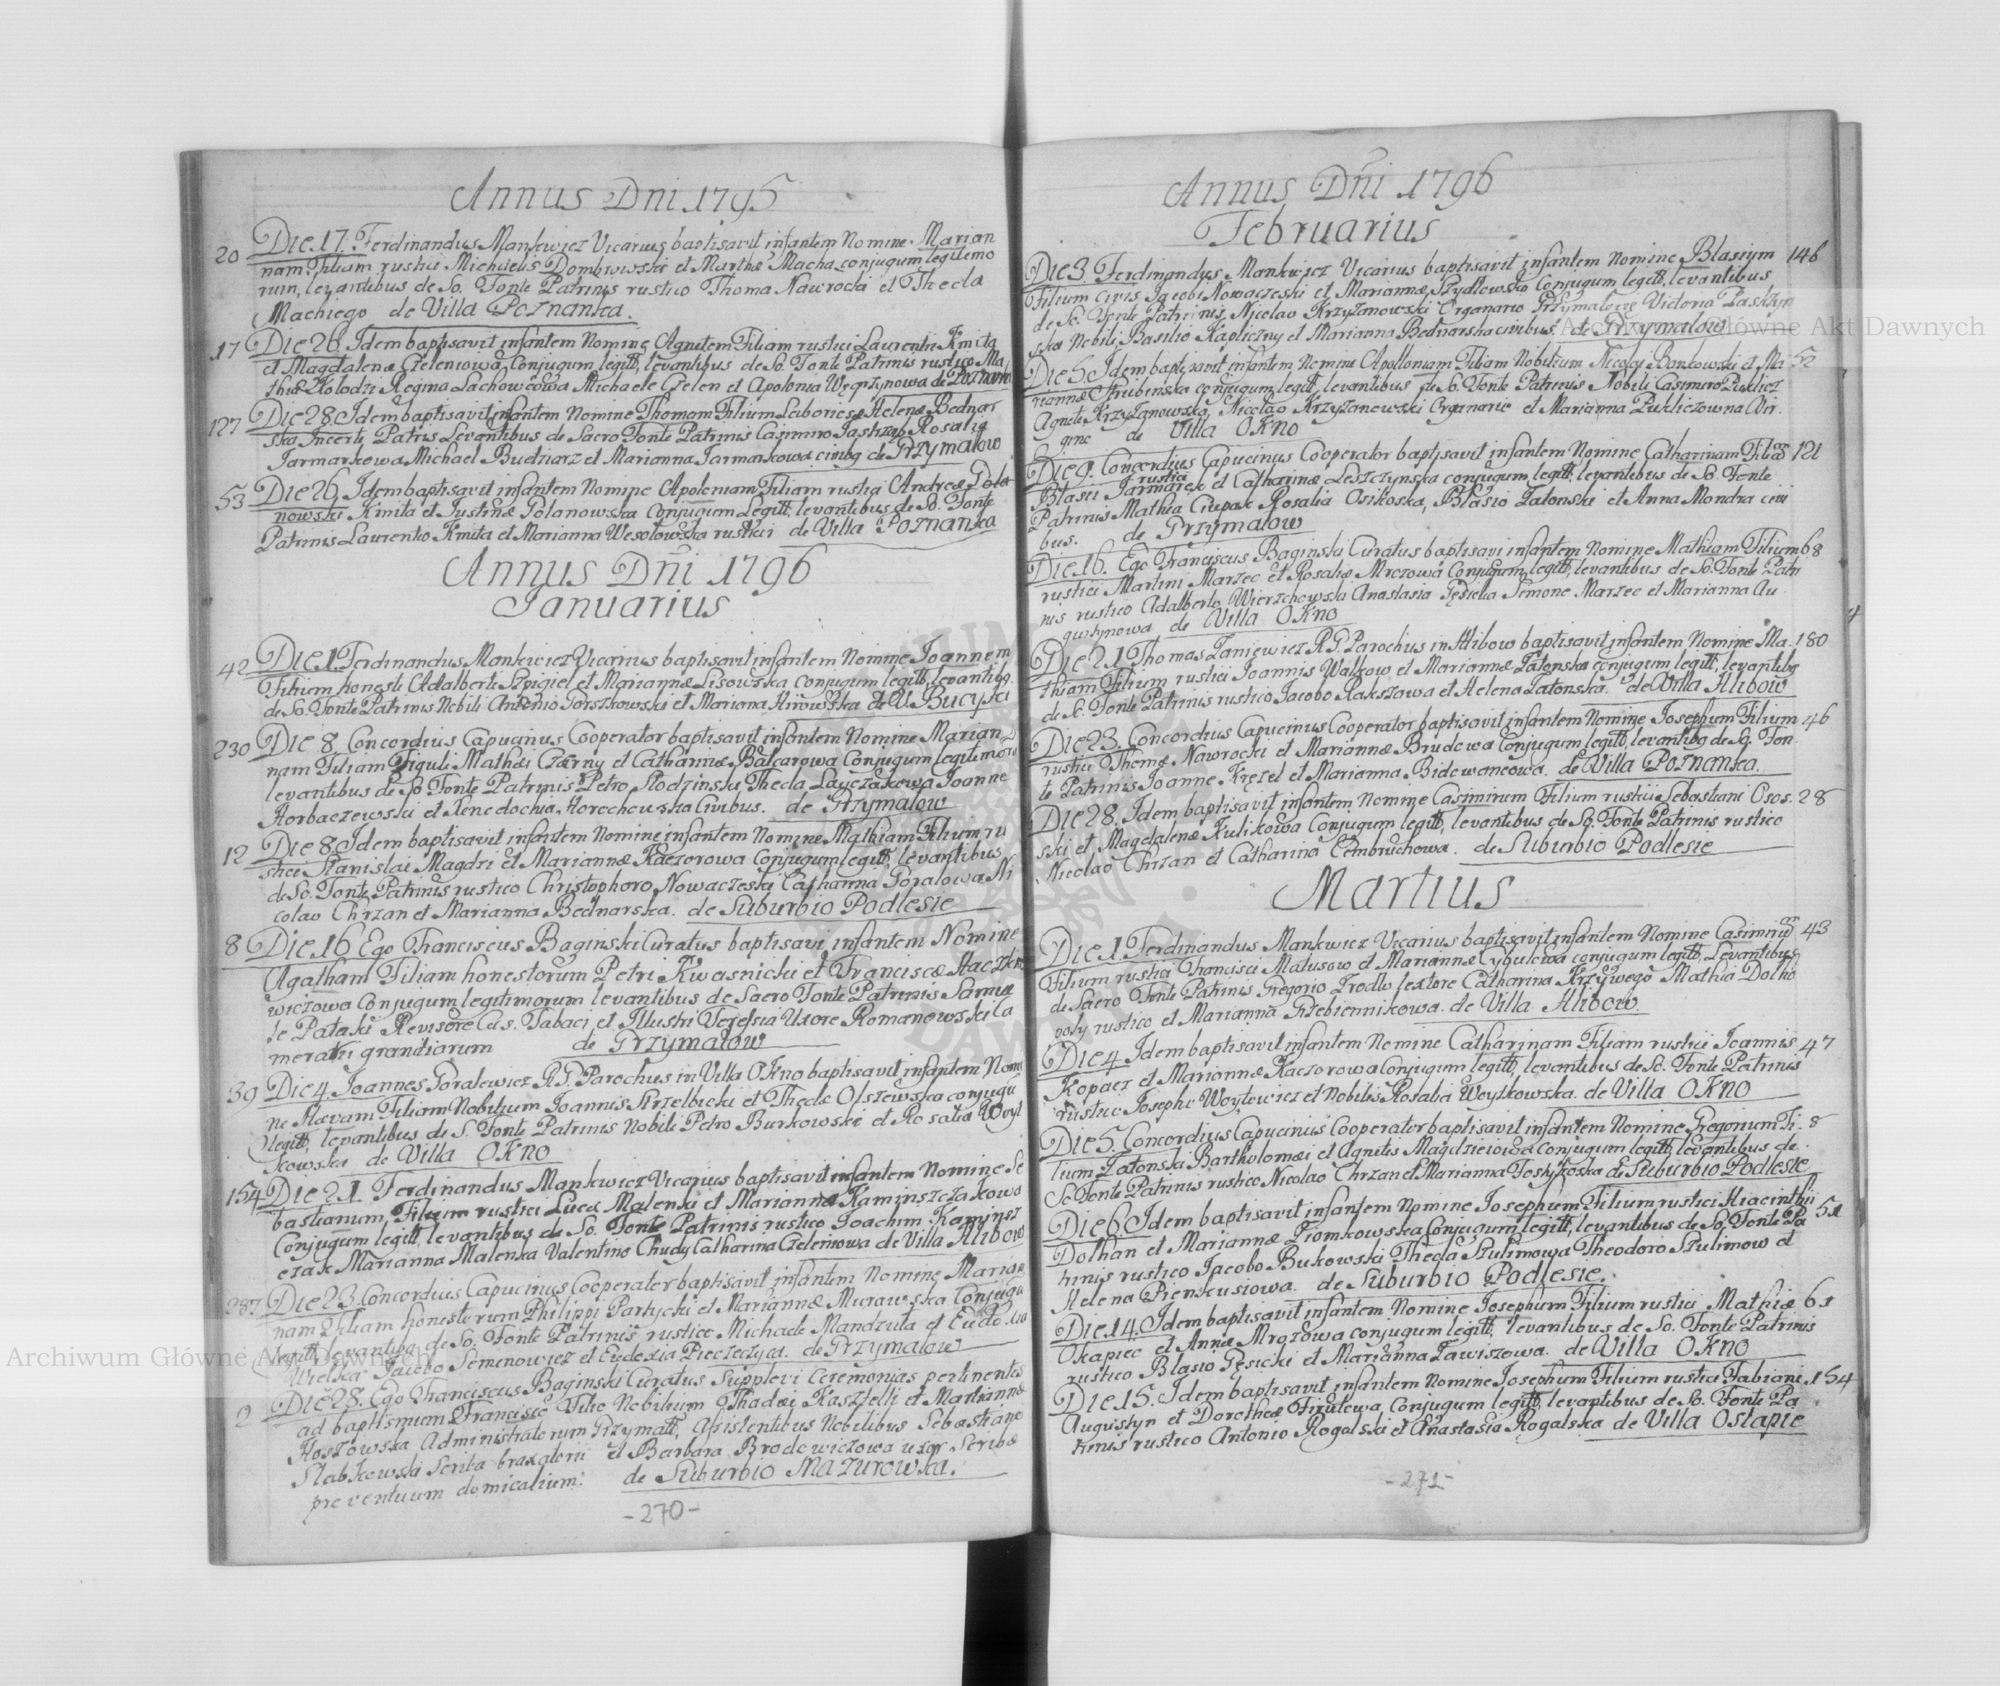 Annus Dni 1795
20 Die 17. Ferdinandus Mankiwicz Vicarius baptisavit infantem Nomine Marian
nam Filiam rustici Michaelis Dombrowski et Marthæ Macha conjugum legitimo
rum, levantibus de So. Fonte Patrinis rustico Thoma Nawrocki et Thecla
Machiego de Villa Poznanka.
17 Die 26. Idem baptisavit infantem Nomine Agnetem Filiam rustici Laurentii Kmita
et Magdalenæ Czeleniowa Conjugum legitt, levantibus de So. Fonte Patrinis rustico Ma
thia Kolodzi Regina Lachowcowa Michaele Czelen et Apolonia Węgrzynowa de Poznanka
127 Die 28. Idem baptisavit infantem Nomine Thomam Filium Laboriosæ Helenæ Bednar
ska Incerti Patris Levantibus de Sacro Fonte Patrinis Casimiro Jastrzab Rosalia
Jarmarkowa Michael Budnarz et Marianna Jarmarkowa civibq de Grzymalow
53 Die 26. Idem baptisavit infantem Nomine Apoleniam Filiam rustici Andreæ Pola
nowski Kmita et Justinæ Polanowska Conjugum Legitt, levantibus de So. Fonte
Patrinis Laurentio Kmita et Marianna Wesolowska rustici de Villa Poznanka
Annus Dni 1796
Ianuarius
42 Die 1. Ferdinandus Mankiwicz Vicarius baptisavit infantem Nomine Joannem
Filium honesti Adalberti Szpigiel et Mariannæ Lisowska conjugum legitt, levantibq.
de So. Fonte Patrinis Nobili Antonio Gorszkowski et Mariana de V. Bucyki
230 Die 8 Concordius Capucinus Cooperator baptisavit infantem Nomine Marian
nam Filiam Figuli Mathei Czarny et Catharinæ Balcarowa Conjugum legitimoru
levantibus de So Fonte Patrinis Petro Slodzinski Thecla Laweżakowa Joanne
Horbaczewski et Xenedochia Horochowska Civibus. de Grzymalow
12 Die 8. Idem baptisavit infantem Nomine infantem Nomine Mathiam Filium ru
stici Stanislai Magdzi et Mariannæ Kaczorowa Conjugum legitt, levantibus
de So. Fonte Patrinis rustico Christophoro Nowaczeski Catharina Goralowa Ni
colao Chrzan et Marianna Bednarska. de Suburbio Podlesie
8 Die 16 Ego Franciscus Baginski Curatus baptisavi infantem Nomine
Agatham Filiam honestorum Petri Kwasnicki et Franciscæ
wiczowa Conjugum legitimorum levantibus de Sacro Fonte Patrinis Samue
le Pataki Revisore Cæs. Tabaci et Illustri Teresia Uxore Romanowski Ca
merarii granitiarum de Grzymalow
39 Die 4 Joannes Goralewicz R.G. Parochus in Villa Okno baptisavit infantem Nomi
ne Slavam Filiam Nobilium Joannis Strzelbicki et Theclæ Olszewska conjugu
legitt, levantibus de S. Fonte Patrinis Nobili Petro Burkowski et Rosalia Woyt
kowska de Villa Okno
154 Die 21. Ferdinandus Mankiwicz Vicarius baptisavit infantem Nomine Se
bastianum, Filium rustici Lucæ Malenki et Mariannæ Kaminszczakowa
Conjugum legitt, levantibus de So. Fonte Patrinis rustico Joachim Kaminsz
czak Marianna Malenka Valentino Chudy Catharina Czeleniowa de Villa Hlibow
287 Die 23. Concordius Capucinus Cooperator baptisavit infantem Nomine Marian
nam Filiam honestorum Philippi Partycki et Mariannæ Murawska Conjugu
legitt, levantibq. de So. Fonte Patrinis rustico Michaele Mandzula et Eudoxia
Wielska Jacobo Semenowicz et Eudoxia Pieczeżyca. de Grzymalow
2 Die 28. Ego Franciscus Baginski Curatus Supplevi Ceremonias pertinentes
ad baptismum Francisco Vitho Nobilium Thadæi Kasztelli et Mariannæ
Roszowska Administratorum Grzymall, assistentibus Nobilibus Sebastiano
Slabkowski Scriba braxatorii et Barbara Brodowiczowa uxor Scribæ
proventuum domicalium: de Suburbio Mazurowka.
-270-
Annus Dni 1796
Februarius
Die 3. Ferdinandus Mankiwicz Vicarius baptisavit infantem Nomine Blasium 146
Filium Civis Jacobi Nowaczeski et Mariannæ Szydlowska Conjugum legitt, levantibus
de So. Fonte Patrinis Nicolao Krzyżanowski Organario Grzymaloviæ Victoria Paskrzyn
ska Nobili Basilio Kapliczny et Marianna Bednarska civibus de Grzymalow
Die 5. Idem baptisavit infantem Nomine Apolloniam Filiam Nobilium Nicolai Bonkowski et Ma 52
riannæ Skubinska conjugum legitt, levantibus de So. Fonte Patrinis Nobili Casimiro Puklicz
Agnete Krzyżanowska, Nicolao Krzyżanowski Organario et Marianna Pukliczowna Vir
gine de Villa Okno
Die 9. Concordius Capucinus Cooperator baptisavit infantem Nomine Catharinam Filiam 121
rustici
Blasii Jarmarek et Catharinæ Leszczynska conjugum legitt, levantibus de So. Fonte
Patrinis Mathia Ciepak Rosalia Osikoska, Blasio Zatonski et Anna Mondra civi
bus. de Grzymalow
Die 16. Ego Franciscus Baginski Curatus baptisavi infantem Nomine Mathiam Filium 68
rustici Martini Marzec et Rosaliæ Mrozowa Conjugum legitt, levantibus de So. Fonte Patri
nis rustico Adalberto Wierzchowski Anastasia Gęsicka Simone Marzec et Marianna Au
gustynowa de Villa Okno
Die 21 Thomas Zaniewicz R.G. Parochus in Hlibow baptisavit infantem Nomine Ma. 180
thiam Filium rustici Joannis Walkow et Mariannæ Zatonska conjugum legitt, levantibq
de So. Fonte Patrinis rustico Jacobo Rakszowa et Helena Zatonska. de Villa Hlibow
Die 23. Concordius Capucinus Cooperator baptisavit infantem Nomine Josephum Filium 46
rustici Thomæ Nawrocki et Mariannæ Brudowa Conjugum legitt, levantibq de So. Fon
te Patrinis Joanne Krężel et Marianna Bidowancowa. de Villa Poznanka.
Die 28. Idem baptisavit infantem Nomine Casimirum Filium rustici Sebastiani Osos 28
ski et Magdalenæ Kulikowa Conjugum legitt, levantibus de So. Fonte Patrinis rustico
Nicolao Chrzan et Catharina Cembruchowa. de Suburbio Podlesie
Martius
Die 1. Ferdinandus Mankiwicz Vicarius baptisavit infantem Nomine Casimirum 43
Filium rustici Francisci Matusow et Mariannæ Cygulowa conjugum legitt, Levantibus
de Sacro Fonte Patrinis Gregorio Zrodly textore Catharina Krzywego Mathia Dolho
poly rustico et Marianna Grzebiennikowa. de Villa Hlibow.
Die 4 Idem baptisavit infantem Nomine Catharinam Filiam rustici Joannis 47
Kopacz et Mariannæ Kaczorowa Conjugum legitt, levantibus de So. Fonte Patrinis
rustico Josepho Woytowicz et Nobilis Rosalia Woytkowska. de Villa Okno
Die 5. Concordius Capucinus Cooperator baptisavit infantem Nomine Gregorium Fi 8
lium Zatonski Bartholomæi et Agnetis Magdzieiowa Conjugum legitt, levantibus de
So Fonte Patrinis rustico Nicolao Chrzan et Marianna de Suburbio Podlesie
Die 6. Idem baptisavit infantem Nomine Josephum Filium rustici Hiacinthi 51
Dolhan et Mariannæ Ziomkowska Conjugum legitt, levantibus de So. Fonte Pa
trinis rustico Jacobo Bukowski Thecla Szulimowa Theodoro Szulimow et
Helena Pienkusiowa. de Suburbio Podlesie.
Die 14. Idem baptisavit infantem Nomine Josephum Filium rustici Mathiæ 61
Okapiec et Annæ Mrozowa conjugum legitt, levantibus de So. Fonte Patrinis
rustico Blasio Gęsicki et Marianna Zawiszowa. de Villa Okno
Die 15. Idem baptisavit infantem Nomine Josephum Filium rustici Fabiani 154
Augustyn et Dorotheæ Firulowa Conjugum legitt, levantibus de So. Fonte Pa
trinis rustico Antonio Rogalski et Anastasia Rogalska de Villa Ostapie
-271-
Archiwum Główne Akt Dawnych
Archiwum Główne Akt Dawnych